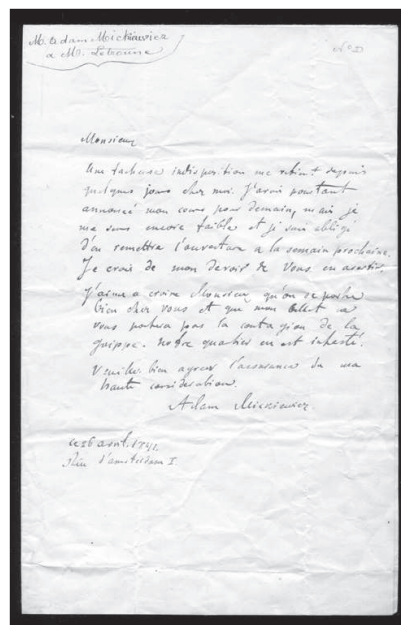 M. Adam Mickiewicz
a M. Letronne
Monsieur
Une facheuse indisposition me retient depuis
quelques jours chez moi. J'avais pourtant
annoncé mon cours pour demain, mais je
me sens encore faible et je suis obligé
d'en remettre l'ouverture a la semaine prochaine.
Je crois de mon devoir de vous en avertir.
J'aime a croire Monsieur qu'on se porte
bien chez vous et que mon billet ne
vous portera pas la contagion de la
grippe. notre quartier en est infesté.
Veuillez bien agreer l'assurance de ma
haute considération
Adam Mickiewicz
ce 26 avril.
Rue d'amsterdam 1.